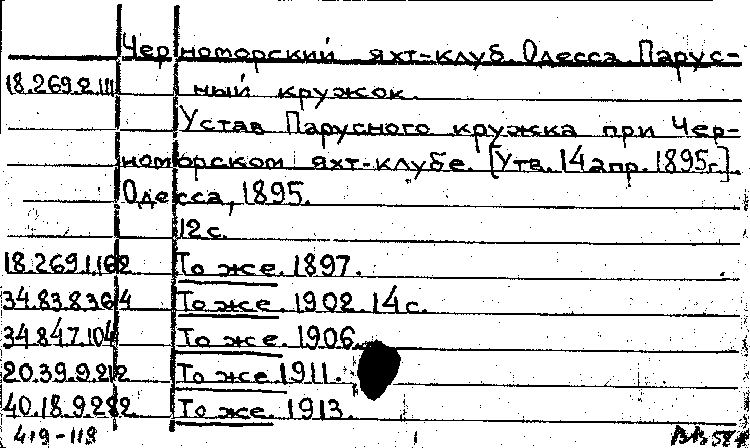 Черноморский яхт-клуб. Одесса. Парус-
18.269.2.111 ный кружок.
Устав Парусного кружка при Чер-
номорском яхт-клубе. [Утв. 14 апр. 1895г.].
Одесса, 1895.
12 с.
18.269.1.162 То же. 1897.
34.83.8.364 То же. 1902. 14 с.
34.847.104 То же. 1906.
20.39.9.212 То же. 1911.
40.18.9.282 То же. 1913.
419-118